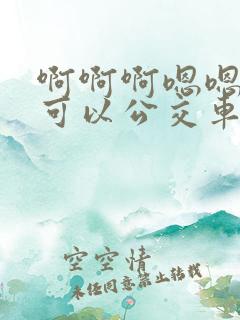 啊啊啊嗯嗯
可以公交车
空空情
未经同意禁止转载